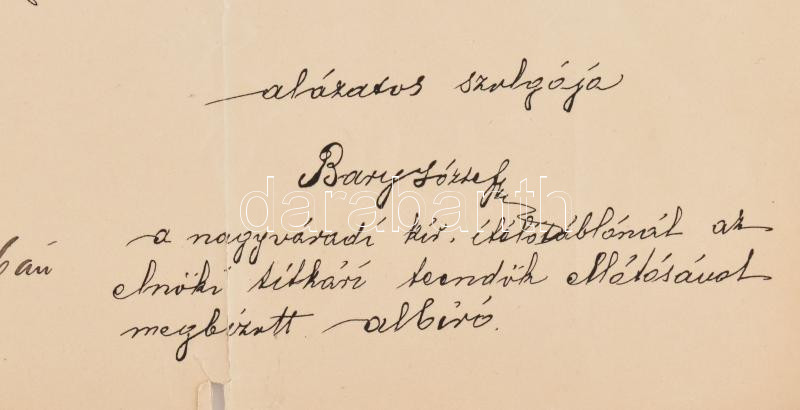 alázatos szolgája
Bary József
a nagyváradi kir. ítélőtáblánál az
elnöki titkári teendők ellátásával
megbízott albíró.